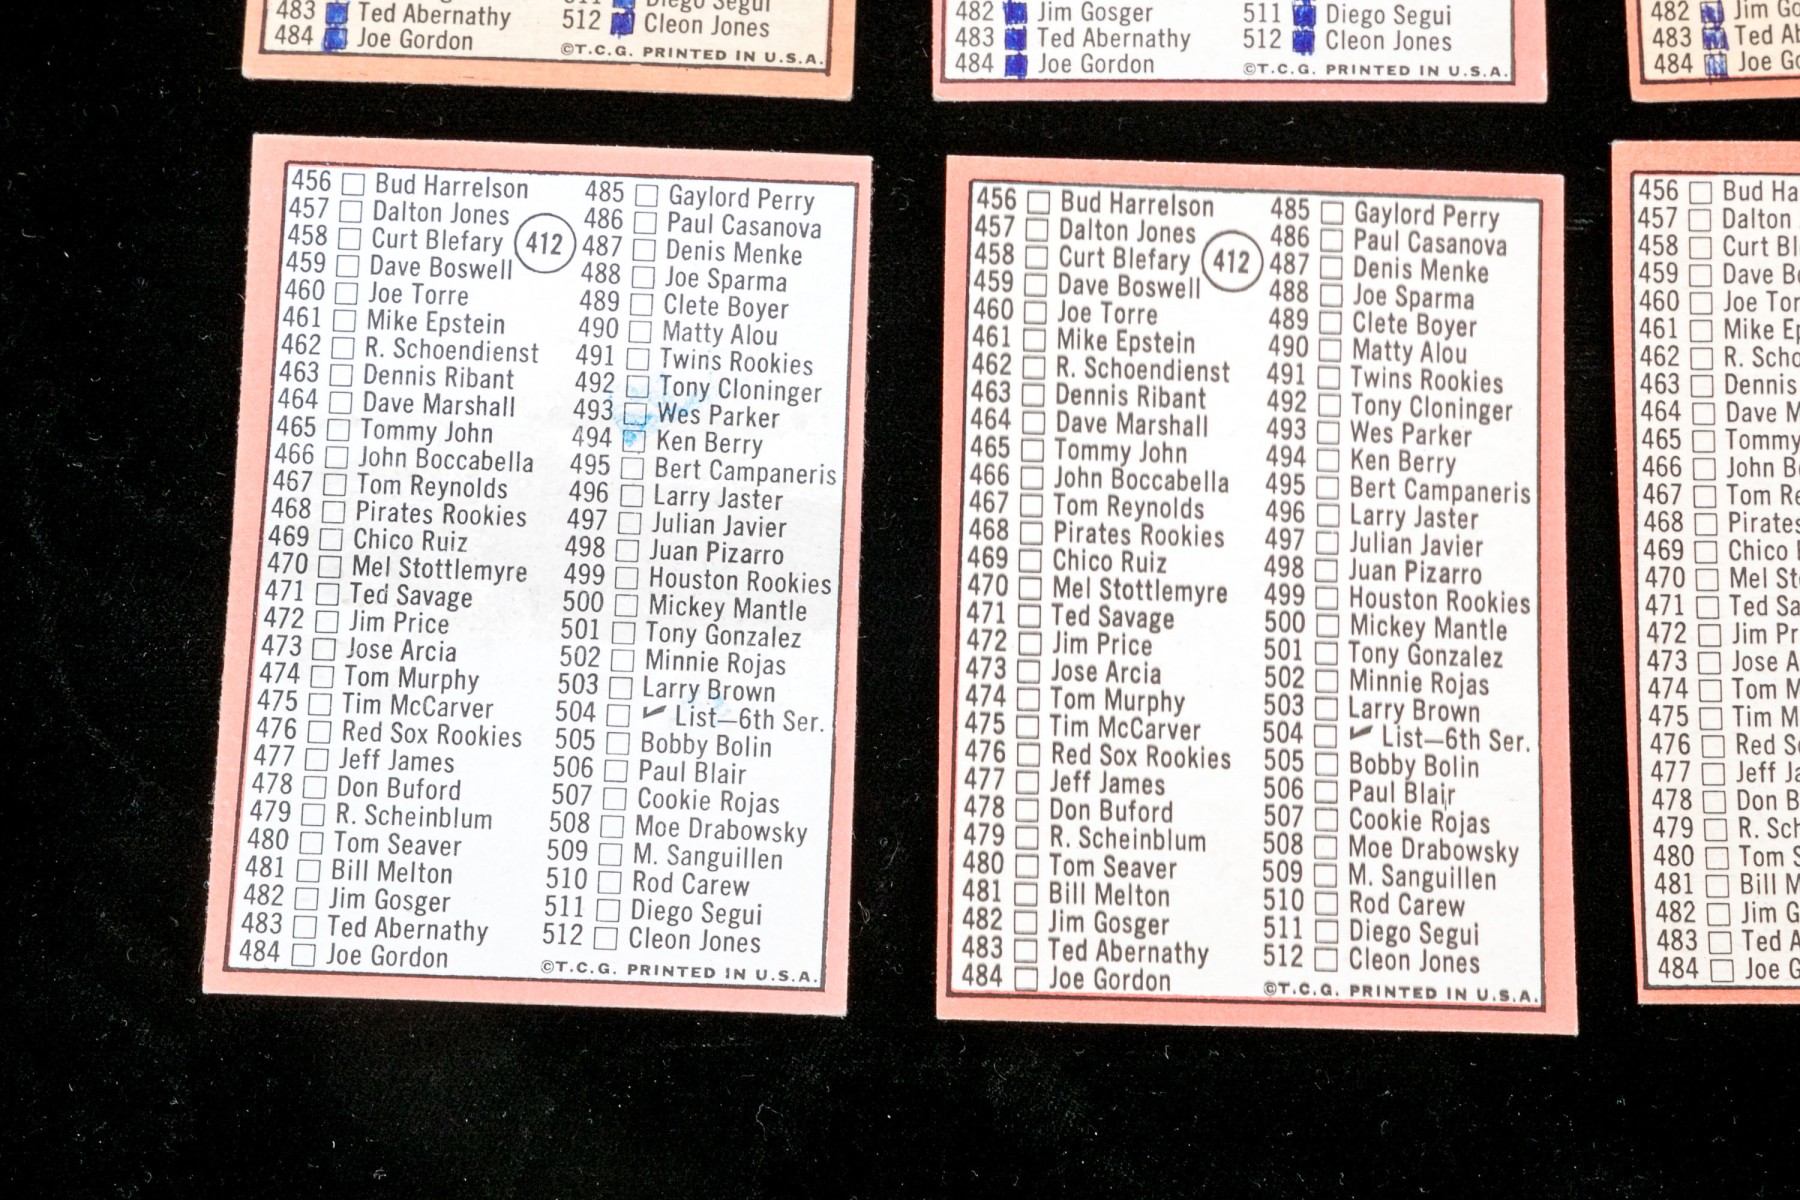 483 Ted Abernathy
484 Joe Gordon
Diego Segui
512 Cleon Jones
©T.C.G. PRINTED IN U.S.A.
482 Jim Gosger
483 Ted Abernathy
484 Joe Gordon
511 Diego Segui
512 Cleon Jones
©T.C.G. PRINTED IN U.S.A.
482 Jim Go
483 Ted Ab
484 Joe Go
456 Bud Harrelson
457 Dalton Jones
458 Curt Blefary
459 Dave Boswell
460 Joe Torre
461 Mike Epstein
462 R. Schoendienst
463 Dennis Ribant
464 Dave Marshall
465 Tommy John
466 John Boccabella
467 Tom Reynolds
468 Pirates Rookies
469 Chico Ruiz
470 Mel Stottlemyre
471 Ted Savage
472 Jim Price
473 Jose Arcia
474 Tom Murphy
475 Tim McCarver
476 Red Sox Rookies
477 Jeff James
478 Don Buford
479 R. Scheinblum
480 Tom Seaver
481 Bill Melton
482 Jim Gosger
483 Ted Abernathy
484 Joe Gordon
412
485 Gaylord Perry
486 Paul Casanova
487 Denis Menke
488 Joe Sparma
489 Clete Boyer
490 Matty Alou
491 Twins Rookies
492 Tony Cloninger
493 Wes Parker
494 Ken Berry
495 Bert Campaneris
496 Larry Jaster
497 Julian Javier
498 Juan Pizarro
499 Houston Rookies
500 Mickey Mantle
501 Tony Gonzalez
502 Minnie Rojas
503 Larry Brown
504 ✔ List—6th Ser.
505 Bobby Bolin
506 Paul Blair
507 Cookie Rojas
508 Moe Drabowsky
509 M. Sanguillen
510 Rod Carew
511 Diego Segui
512 Cleon Jones
©T.C.G. PRINTED IN U.S.A.
456 Bud Harrelson
457 Dalton Jones
458 Curt Blefary
459 Dave Boswell
460 Joe Torre
461 Mike Epstein
462 R. Schoendienst
463 Dennis Ribant
464 Dave Marshall
465 Tommy John
466 John Boccabella
467 Tom Reynolds
468 Pirates Rookies
469 Chico Ruiz
470 Mel Stottlemyre
471 Ted Savage
472 Jim Price
473 Jose Arcia
474 Tom Murphy
475 Tim McCarver
476 Red Sox Rookies
477 Jeff James
478 Don Buford
479 R. Scheinblum
480 Tom Seaver
481 Bill Melton
482 Jim Gosger
483 Ted Abernathy
484 Joe Gordon
412
485 Gaylord Perry
486 Paul Casanova
487 Denis Menke
488 Joe Sparma
489 Clete Boyer
490 Matty Alou
491 Twins Rookies
492 Tony Cloninger
493 Wes Parker
494 Ken Berry
495 Bert Campaneris
496 Larry Jaster
497 Julian Javier
498 Juan Pizarro
499 Houston Rookies
500 Mickey Mantle
501 Tony Gonzalez
502 Minnie Rojas
503 Larry Brown
504 ✔ List—6th Ser.
505 Bobby Bolin
506 Paul Blair
507 Cookie Rojas
508 Moe Drabowsky
509 M. Sanguillen
510 Rod Carew
511 Diego Segui
512 Cleon Jones
©T.C.G. PRINTED IN U.S.A.
456 Bud Ha
457 Dalton
458 Curt Bl
459 Dave Bo
460 Joe Tor
461 Mike Ep
462 R. Scho
463 Dennis
464 Dave M
465 Tommy
466 John Bo
467 Tom Re
468 Pirates
469 Chico
470 Mel St
471 Ted Sa
472 Jim Pr
473 Jose A
474 Tom M
475 Tim M
476 Red S
477 Jeff Ja
478 Don B
479 R. Sch
480 Tom S
481 Bill M
482 Jim G
483 Ted A
484 Joe G